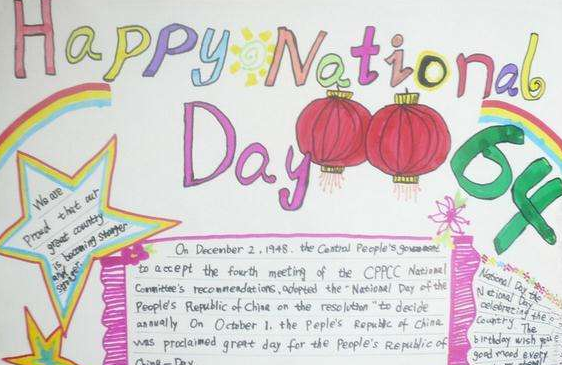 Happy National
Day
64
We are
proud that our
great country
is becoming stronger
and
On December 2, 1948. the Central People's government
to accept the fourth meeting of the CPPCC National
Committee's recommendations, adopted the "National Day of the
People's Republic of China on the resolution "to decide
annually On October 1. the Peple's Republic of China
was proclaimed great day for the People's Republic of
China - Day
National Day the
National Day
celebrating the
Country The
birthday wish you
good mood every